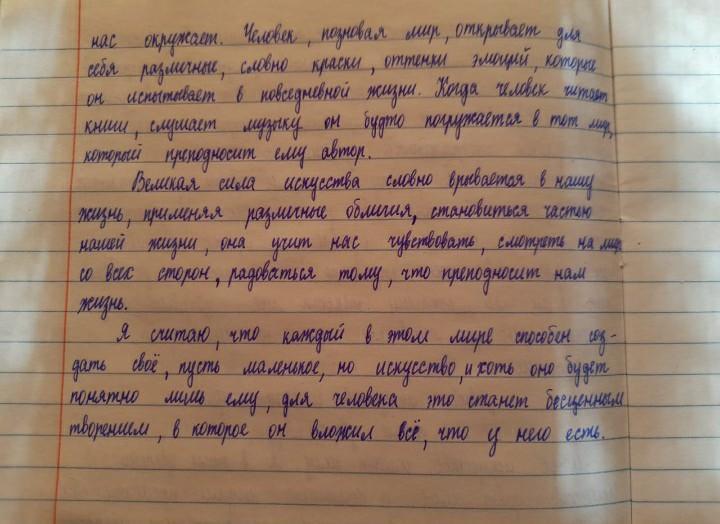 нас окружает. Человек, позновая мир, открывает для
себя различные, словно краски, оттенки эмоций, которые
он испытывает в повседневной жизни. Когда человек читает
книги, слушает музыку он будто погружается в тот мир,
который преподносит ему автор.
Великая сила искусства словно врывается в нашу
жизнь, применяя различные облигия, становиться частью
нашей жизни, она учит нас чувствовать, смотреть на мир
со всех сторон, радоваться тому, что преподносит нам
жизнь.
Я считаю, что каждый в этом мире способен соз-
дать своё, пусть маленькое, но искусство, и хоть оно будет
понятно лишь ему, для человека это станет бесценным
творением, в которое он вложил всё, что у него есть.